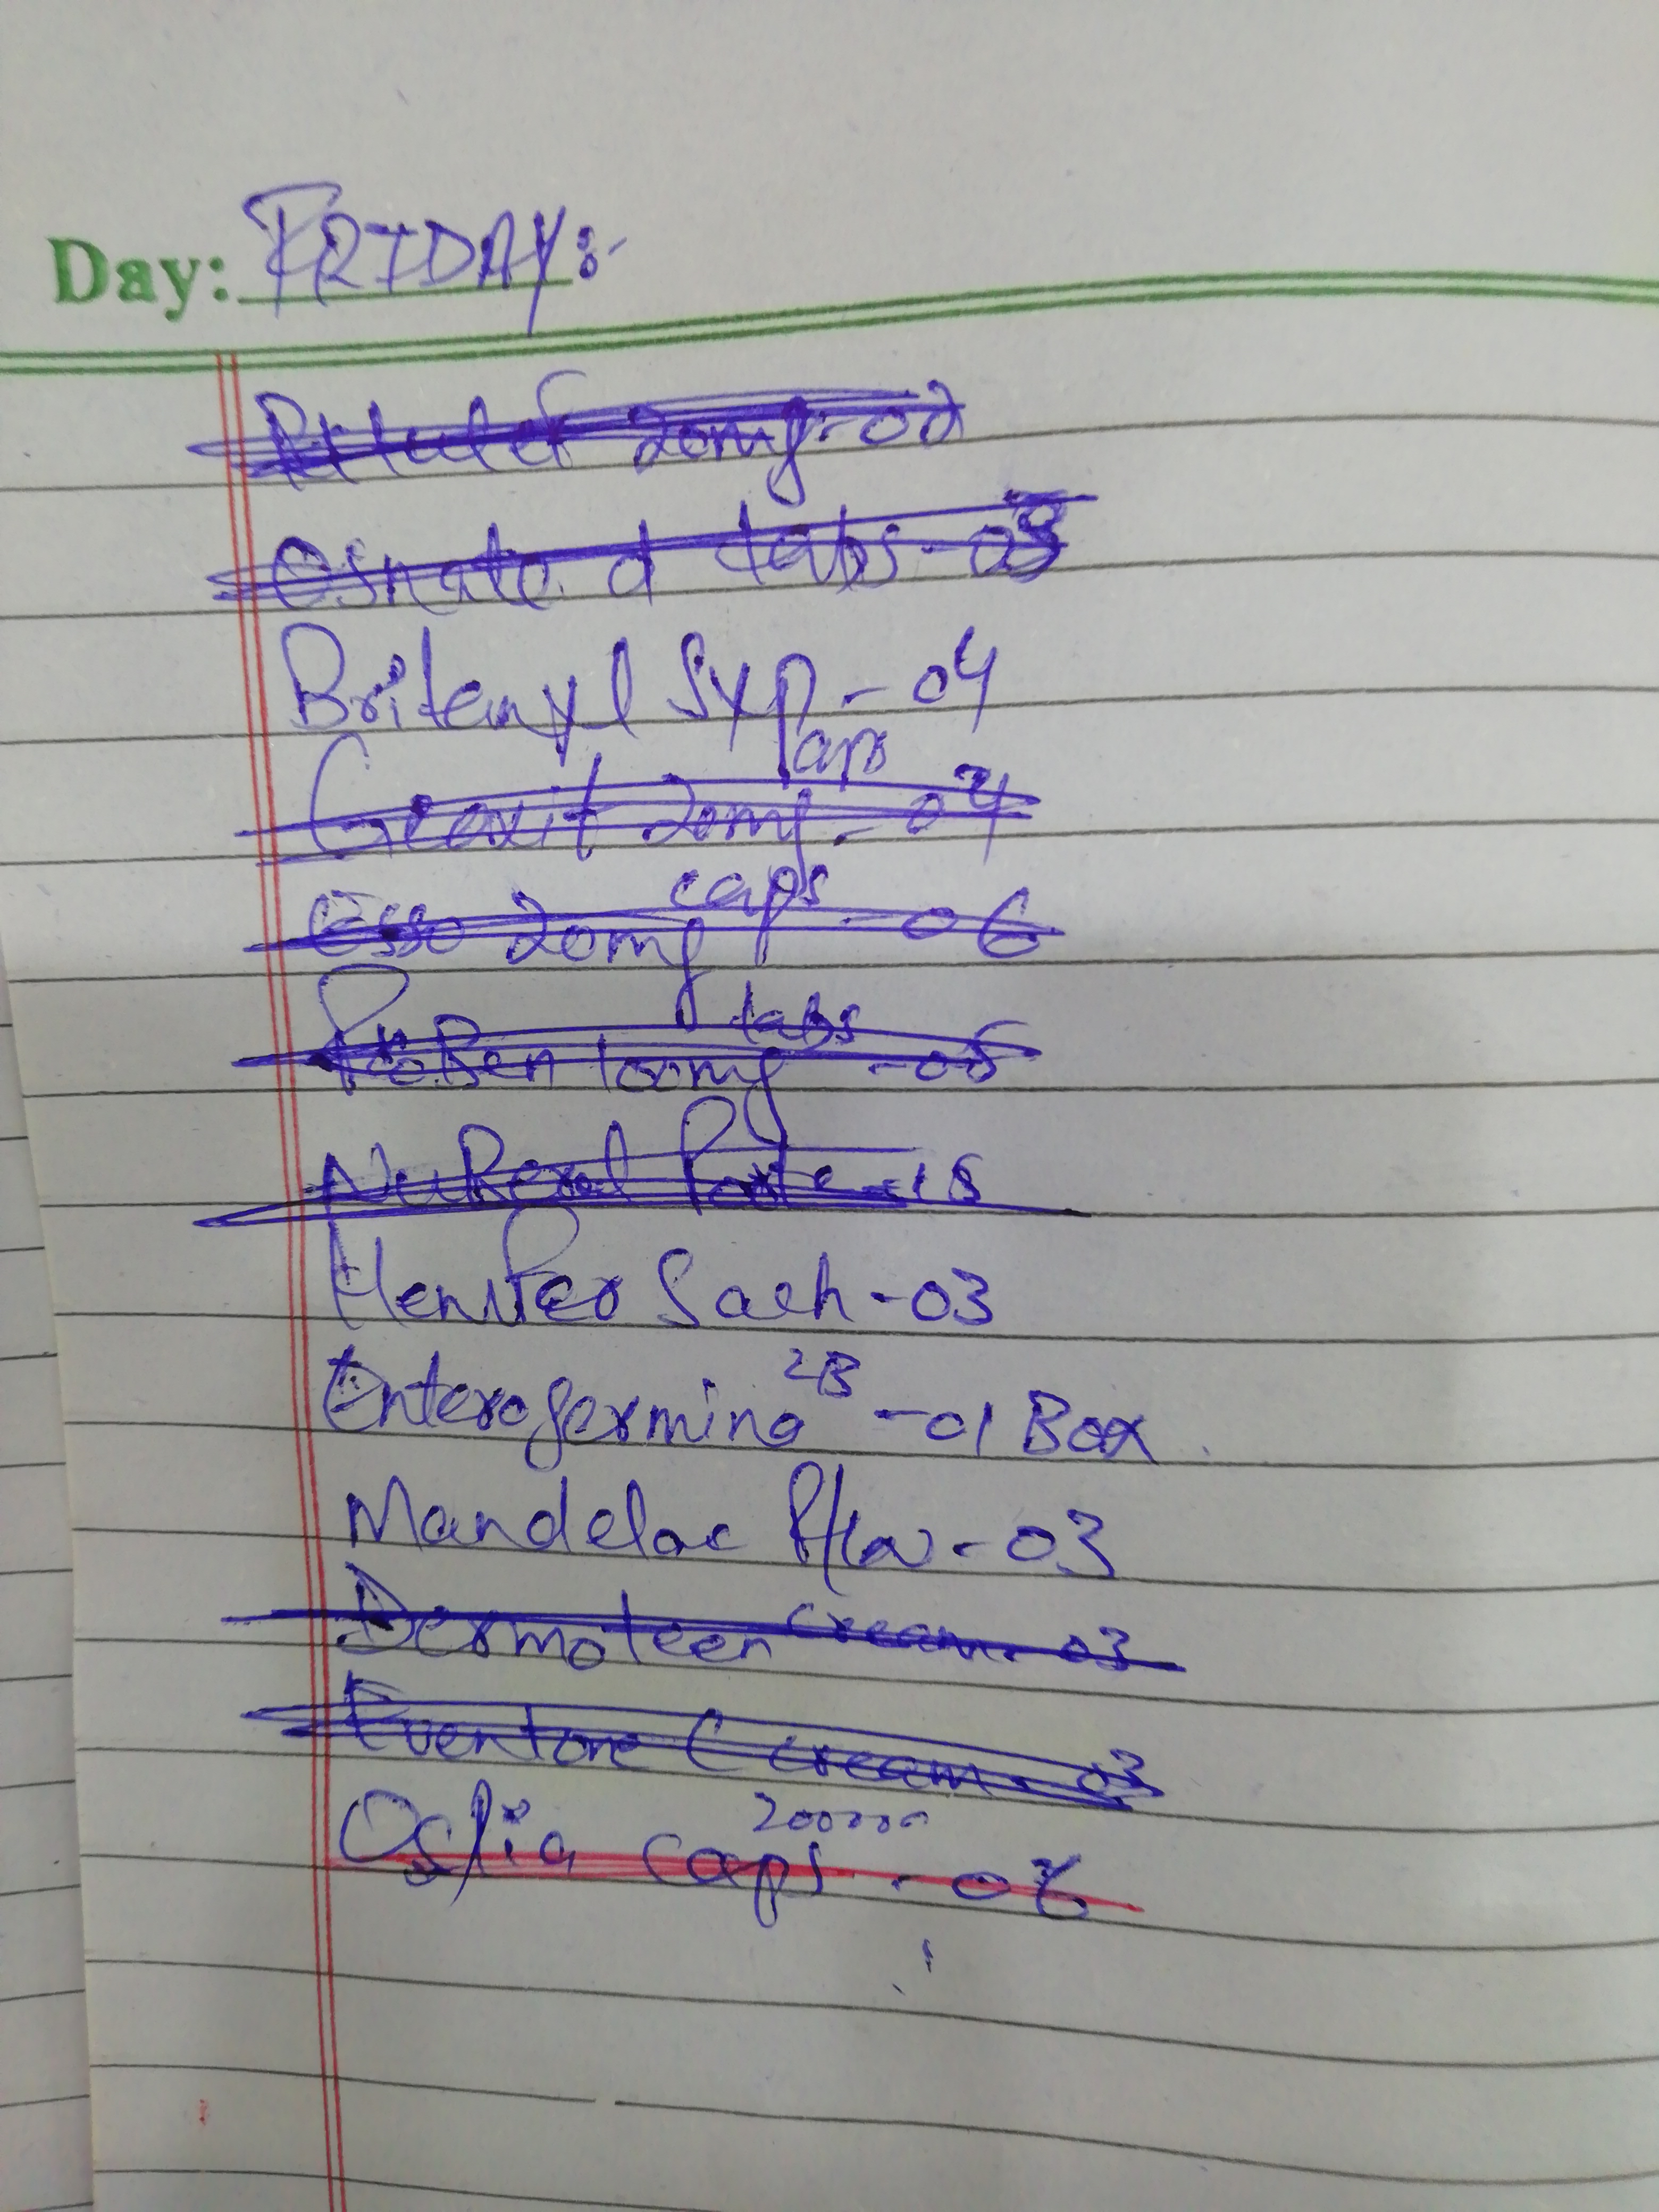 Day: FRIDAY:-
20mg-02
Osnate d tabs-03
Britanyl Syp-04
caps
20mg-04
caps
Esso 20mg-06
tabs
100mg-05
NuBerol Forte-15
Sach-03
2B
Enterogermina-01 Box
Mandelac F/W-03
Dermoteen Cream-03
Eventone C cream-03
200000
Oslia caps-06